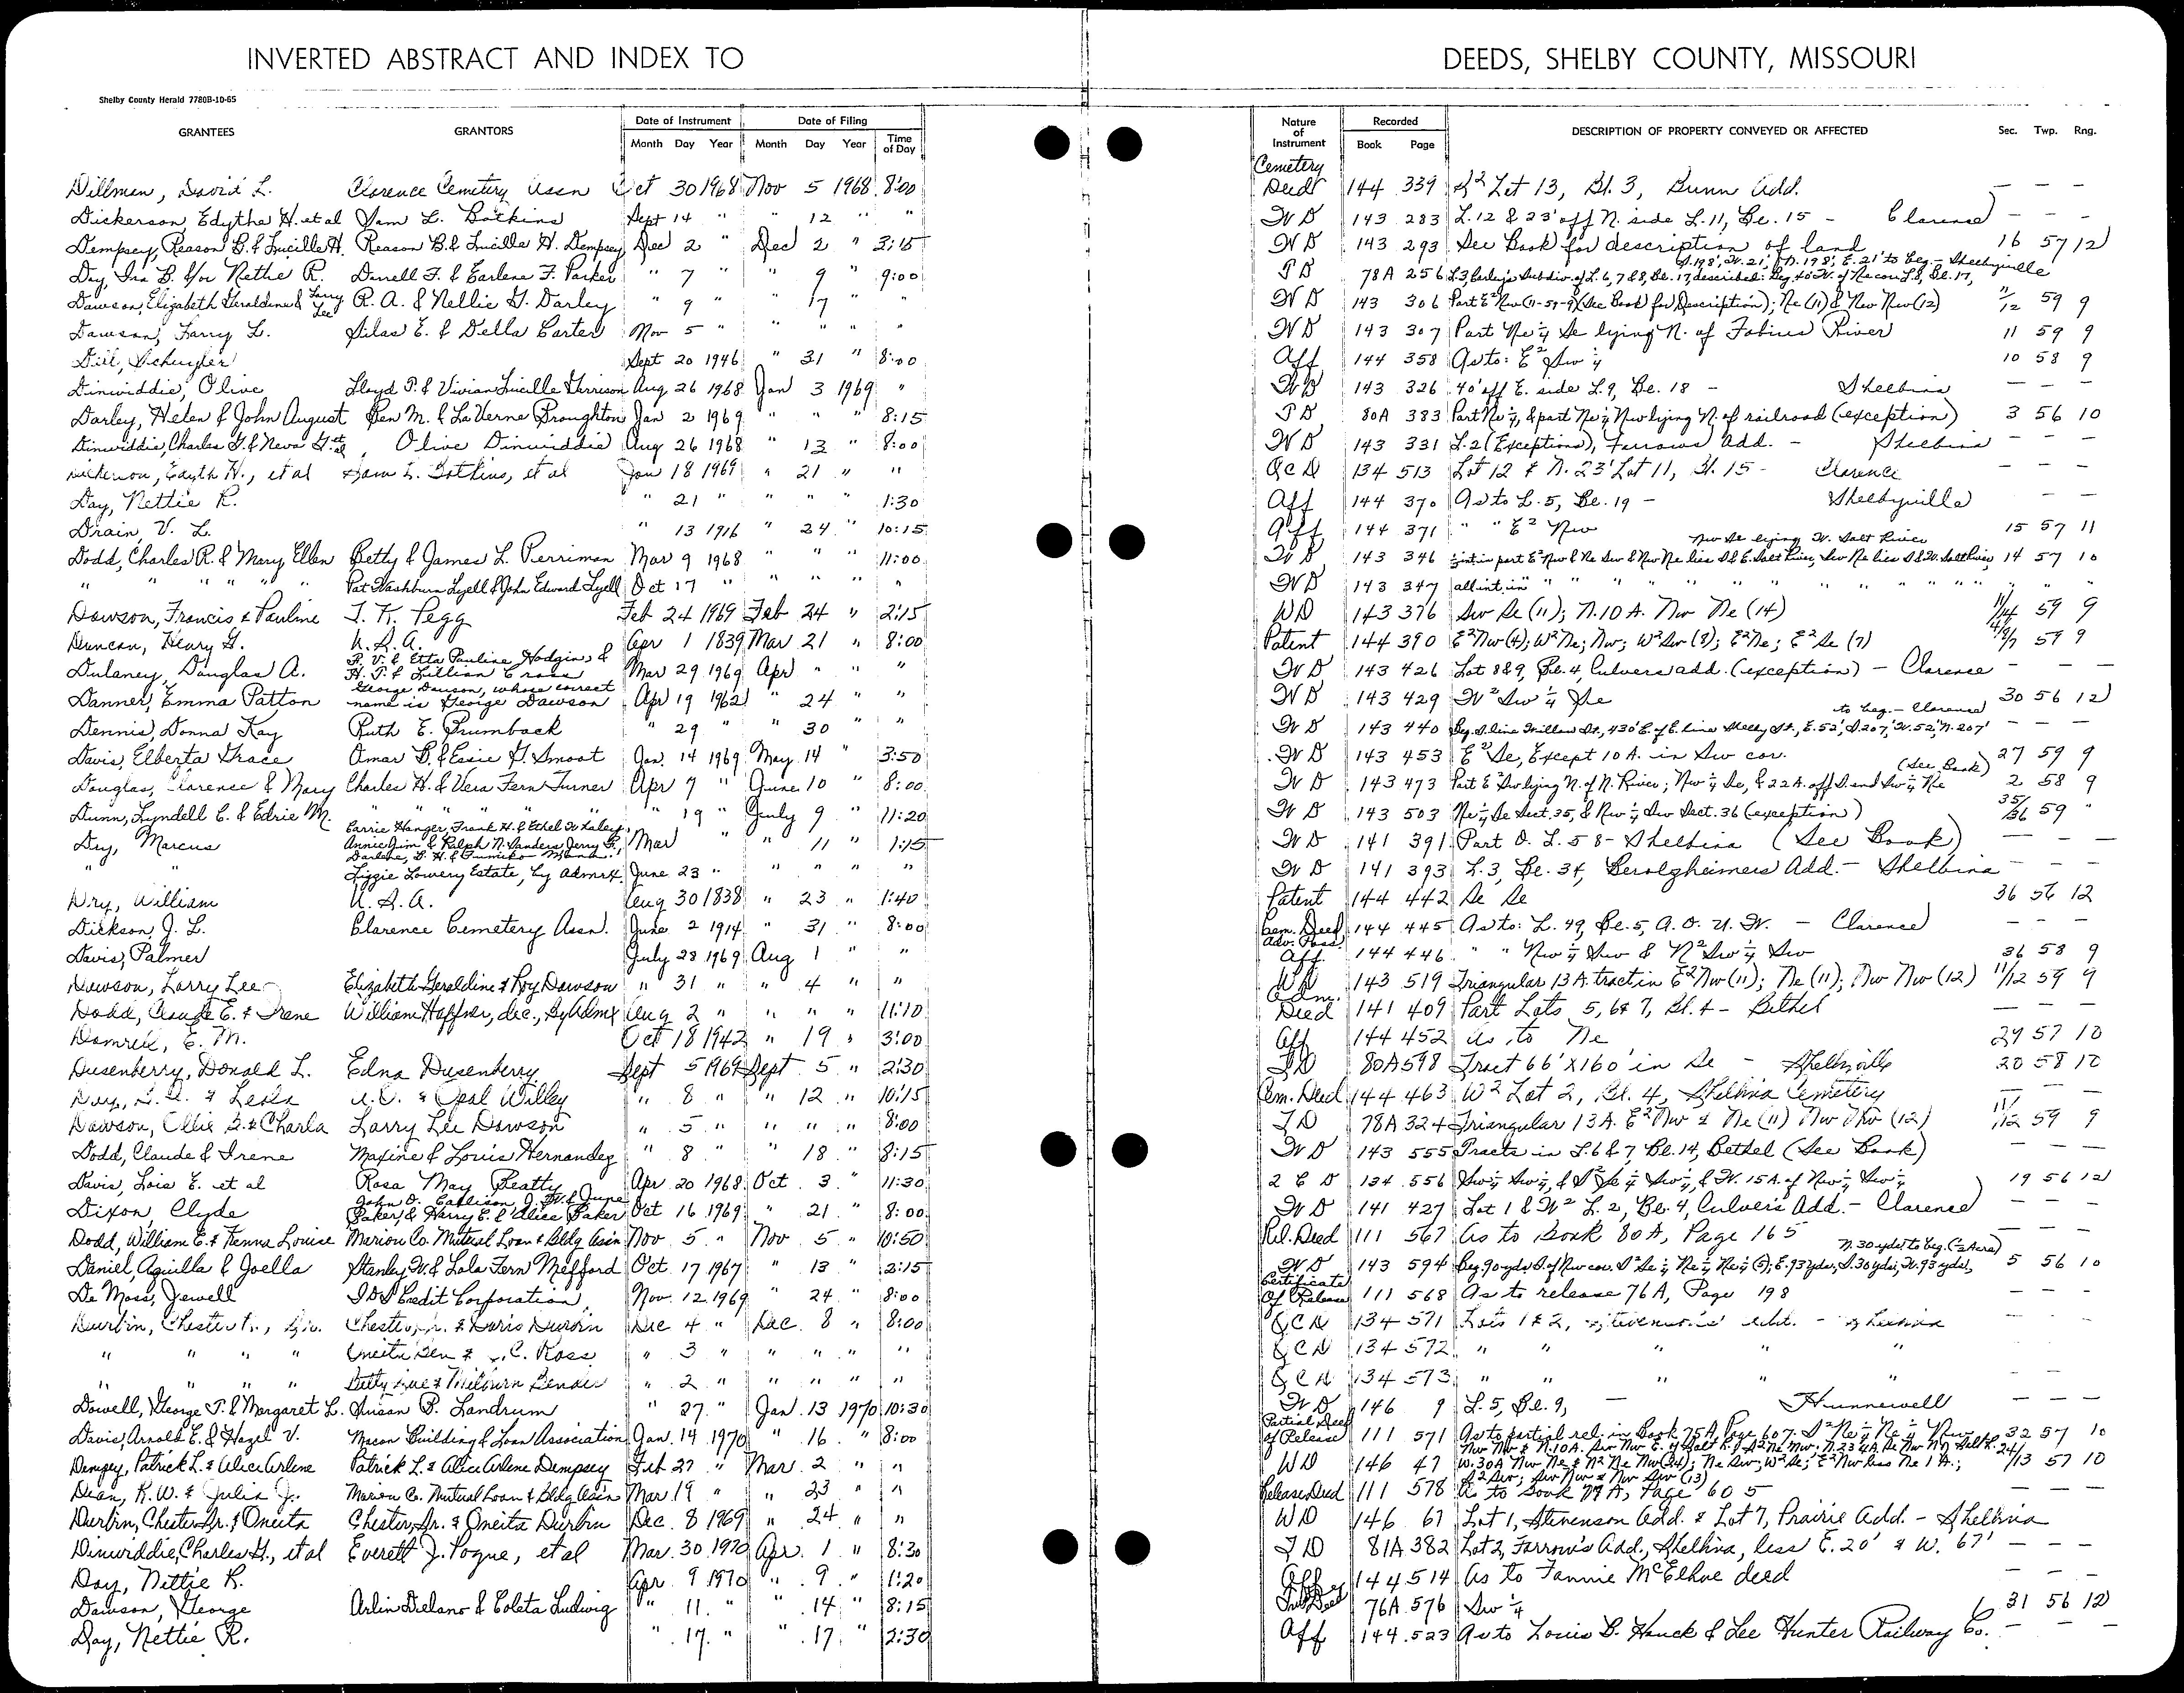 INVERTED ABSTRACT AND INDEX TO DEEDS, SHELBY COUNTY, MISSOURI
Shelby County Herald 7780B-10-65
GRANTEES GRANTORS Date of Instrument Date of Filing Nature of Instrument Recorded DESCRIPTION OF PROPERTY CONVEYED OR AFFECTED Sec. Twp. Rng.
Month Day Year Month Day Year Time of Day Book Page
Dillman, David L. Clarence Cemetery Assn Oct 30 1968 Nov 5 1968 8:00 Cemetery Deed 144 339 S² Lot 13, Bl. 3, Bunn Add. — — —
Dickerson, Edythe H. et al Sam L. Botkins Sept 14 " " 12 " " W D 143 283 L. 12 & 23' off N. side L. 11, Bl. 15 - Clarence — — —
Dempsey, Reason B. & Lucille H. Reason B. & Lucille H. Dempsey Dec 2 " Dec 2 " 3:15 W D 143 293 See Book for description of land 16 57 12
Day, Ira B. &/or Nettie R. Darrell F. & Earlene F. Parker " 7 " " 9 " 9:00 T D 78A 256 L3, Subdiv. of L. 6, 7 & 8, Bl. 17, described: Beg. 40' W. of Ne cor L8, Bl. 17, S. 198', W. 21', N. 198', E. 21' to beg. - Shelbyville
Dawson, Elizabeth Geraldine & Larry Lee R. A. & Nellie G. Darley " 9 " " 17 " " W D 143 306 Part E² Nw (11-59-9) (See Book for Description); Ne (11) & Nw Nw (12) 11/12 59 9
Dawson, Larry L. Silas E. & Della Carter Nov 5 " " " " " W D 143 307 Part Ne ¼ Se lying N. of Fabius River 11 59 9
Dill, Schuyler Sept 20 1946 " 31 " 8:00 Aff 144 358 As to: E² Sw ¼ 10 58 9
Dinwiddie, Olive Lloyd P. & Vivian Lucille Garrison Aug 26 1968 Jan 3 1969 " W D 143 326 40' off E. side L. 9, Bl. 18 - Shelbina — — —
Darley, Helen & John August Ben M. & LaVerne Broughton Jan 2 1969 " " " 8:15 T D 80A 383 Part Ne ¼, & part Ne ¼ Nw lying N. of railroad (exception) 3 56 10
Dinwiddie, Charles G. & Neva G. et al Olive Dinwiddie Aug 26 1968 " 13 " 8:00 W D 143 331 L. 2 (Exceptions), Farrows Add. - Shelbina — — —
Dickerson, Edyth H., et al Sam L. Botkins, et al Jan 18 1969 " 21 " " Q C D 134 513 Lot 12 & N. 23' Lot 11, Bl. 15 - Clarence — — —
Day, Nettie R. " 21 " " " " 1:30 Aff 144 370 As to L. 5, Bl. 19 - Shelbyville — —
Drain, V. L. " 13 1916 " 24 " 10:15 Aff 144 371 " " E² Nw 15 57 11
Dodd, Charles R. & Mary Ellen Betty & James L. Perriman Mar 9 1968 " " " 11:00 W D 143 346 int. in part E² Nw & Ne Sw & Nw Ne lies S & E. Salt River, Sw Ne lies S & W. Salt River, Nw Se lying W. Salt River 14 57 10
" " " " " Pat Washburn Lyell & John Edward Lyell Oct 17 " " " " " W D 143 347 all int. in " " " " " " "
Dawson, Francis & Pauline T. K. Pegg Feb 24 1969 Feb 24 " 2:15 WD 143 376 Sw Se (11); N. 10 A. Nw Ne (14) 11/14 59 9
Duncan, Henry G. U.S.A. Apr 1 1839 Mar 21 " 8:00 Patent 144 390 E² Nw (4); W² Ne; Nw; W² Sw (8); E² Ne; E² Se (7) 4/8/7 59 9
Dulaney, Douglas A. P. V. & Etta Pauline Hodgins & H. T. & Lillian Cross Mar 29 1969 Apr " " " W D 143 426 Lot 8 & 9, Bl. 4, Culvers add. (exception) - Clarence — — —
Danner, Emma Patton George Dawson, whose correct name is George Dawson Apr 19 1962 " 24 " " W D 143 429 W² Sw ¼ Se 30 56 12
Dennis, Donna Kay Ruth E. Brumback " 29 " " 30 " " W D 143 440 Beg. S. line Willow St., 430' E. of E. line Shelby St., E. 52', S. 207', W. 52', N. 207' to beg. - Clarence — — —
Davis, Elberta Grace Omar B. & Essie G. Smoot Jan. 14 1969 May 14 " 3:50 W D 143 453 E² Se, Except 10 A. in Sw cor. 27 59 9
Douglas, Clarence & Mary Charles H. & Vera Fern Turner Apr 7 " June 10 " 8:00 W D 143 473 Part E² Sw lying N. of N. River; Nw ¼ Se, & 22 A. off S. end Sw ¼ Ne (See Book) 2 58 9
Dunn, Lyndell C. & Edrie M. " " " " " " 19 " July 9 " 11:20 W D 143 503 Ne ¼ Se Sect. 35, & Nw ¼ Sw Sect. 36 (exception) 35/36 59 "
Dry, Marcus Carrie Hanger, Frank H. & Ethel Annie Jim & Ralph N. Sanders Jerry Darlene, Mar " " 11 " 1:15 W D 141 391 Part O. L. 58 - Shelbina (See Book) — — —
" " Lizzie Lowery Estate, by Admrx. June 23 " " " " " W D 141 393 L. 3, Bl. 34, Berolzheimers Add. - Shelbina — — —
Dry, William U.S.A. Aug 30 1838 " 23 " 1:40 Patent 144 442 Se Se 36 56 12
Dickson, J. L. Clarence Cemetery Assn. June 2 1914 " 31 " 8:00 Cem. Deed 144 445 As to: L. 49, Bl. 5, A. O. U. W. - Clarence — — —
Davis, Palmer July 28 1969 Aug 1 " " Adv. Poss. Aff. 144 446 " " Nw ¼ Sw & N² Sw ¼ Sw 36 58 9
Dawson, Larry Lee Elizabeth Geraldine & Roy Dawson " 31 " " 4 " " WD 143 519 Triangular 13 A. tract in E² Nw (11); Ne (11); Nw Nw (12) 11/12 59 9
Dodd, Claude E. & Irene William Haffner, dec., By Admx Aug 2 " " " " 11:10 Adm. Deed 141 409 Part Lots 5, 6 & 7, Bl. 4 - Bethel — — —
Damrell, E. M. Oct 18 1942 " 19 " 3:00 Aff 144 452 As to Ne 29 57 10
Dusenberry, Donald L. Edna Dusenberry Sept 5 1969 Sept 5 " 2:30 TD 80A 598 Tract 66' x 160' in Se - Shelbyville 20 58 10
& Leslie & Opal Willey " 8 " " 12 " 10:15 Cem. Deed 144 463 W² Lot 2, Bl. 4, Shelbina Cemetery — — —
Dawson, Ollie & Charla Larry Lee Dawson " 5 " " " " 8:00 T D 78A 324 Triangular 13 A. E² Nw & Ne (11) Nw Nw (12) 11/12 59 9
Dodd, Claude & Irene Maxine & Louis Hernandez " 8 " " 18 " 8:15 W D 143 555 Tracts in L. 6 & 7 Bl. 14, Bethel (See Book) — — —
Davis, Lois E. et al Rosa May Beatty Apr. 20 1968 Oct. 3 " 11:30 Q C D 134 556 Sw ¼ Sw ¼, & S² Se ¼ Sw ¼, & W. 15 A. of Nw ¼ Sw ¼ 19 56 12
Dixon, Clyde John O. Callison, J. W. & June Baker, & Harry E. & Alice Baker Oct 16 1969 " 21 " 8:00 W D 141 427 Lot 1 & W² L. 2, Bl. 4, Culver's Add. - Clarence — — —
Dodd, William E. & Fenna Louise Marion Co. Mutual Loan & Bldg Assn Nov. 5 " Nov 5 " 10:50 Rel. Deed 111 567 As to Book 80 A, Page 165 — — —
Daniel, Aquilla & Joella Stanley W. & Lola Fern Mefford Oct. 17 1967 " 13 " 2:15 W D 143 594 Beg. 90 yds S. of Nw cor. S² Se ¼ Ne ¼ Ne ¼ (5); E. 93 yds, S. 30 yds; W. 93 yds, N. 30 yds to beg. (½ Acre) 5 56 10
De Moss, Jewell I D S Credit Corporation Nov. 12 1969 " 24 " 8:00 Certificate Of Release 111 568 As to release 76 A, Page 198 — — —
Durbin, Chester Chester, Jr. & Doris Durbin Dec 4 " Dec. 8 " 8:00 Q C D 134 571 Lots 1 & 2, Stevenson's Add. - Shelbina — —
" " " " Oneita & C. Ross " 3 " " " " " Q C D 134 572 " " " " — —
" " " " Betty Sue & Milburn Bender " 2 " " " " Q C D 134 573 " " " " — —
Dowell, George T. & Margaret L. Susan P. Landrum " 27 " Jan. 13 1970 10:30 W D 146 9 L. 5, Bl. 9, — Hunnewell — — —
Davis, Arnold E. & Hazel V. Macon Building & Loan Association Jan. 14 1970 " 16 " 8:00 Partial Deed of Release 111 571 As to partial rel. in Book 75A, Page 607. S² Ne ¼ Ne ¼ Nw 32 57 10
Dempsey, Patrick L. & Alice Arlene Patrick L. & Alice Arlene Dempsey Feb 27 " Mar. 2 " " WD 146 47 Nw Nw & N. 10 A. Sw Nw W. 30 A Nw Ne & N² Ne Nw (24); Ne Sw; W² Se; E² Nw less Ne 1 A.; S² Sw; Sw Nw & Nw Sw (13) 24/13 57 10
Dean, R. W. & Julia J. Marion Co. Mutual Loan & Bldg Assn Mar 19 " " 23 " " Release Deed 111 578 As to Book 79 A, Page 605 — — —
Durbin, Chester Jr. & Oneita Chester, Jr. & Oneita Durbin Dec. 8 1969 " 24 " " WD 146 67 Lot 1, Stevenson Add. & Lot 7, Prairie Add. - Shelbina
Dinwiddie, Charles G., et al Everett J. Pogue, et al Mar. 30 1970 Apr. 1 " 8:30 T D 81A 382 Lot 2, Farrow's Add., Shelbina, less E. 20' & W. 67' — — —
Day, Nettie R. Apr. 9 1970 " 9 " 1:20 Aff 144 514 As to Fannie McElhoe deed — — —
Dawson, George Arlin Delano & Coleta Ludwig " 11 " " 14 " 8:15 Deed 76A 576 Sw ¼ 31 56 12
Day, Nettie R. " 17 " " 17 " 2:30 Aff 144 523 As to Louis B. Houck & Lee Hunter Railway Co. — — —